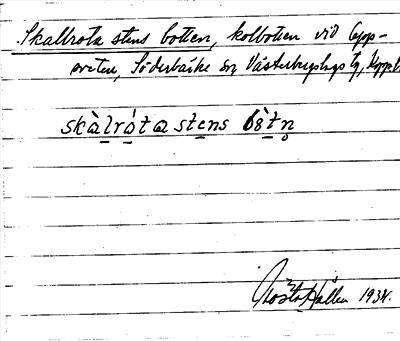 Skallrota stens botten, kolbotten vid Uppsveten, Söderbärke sn, Västerbergslags
skàlròta stens bòtn
Gösta Hallen 1934.